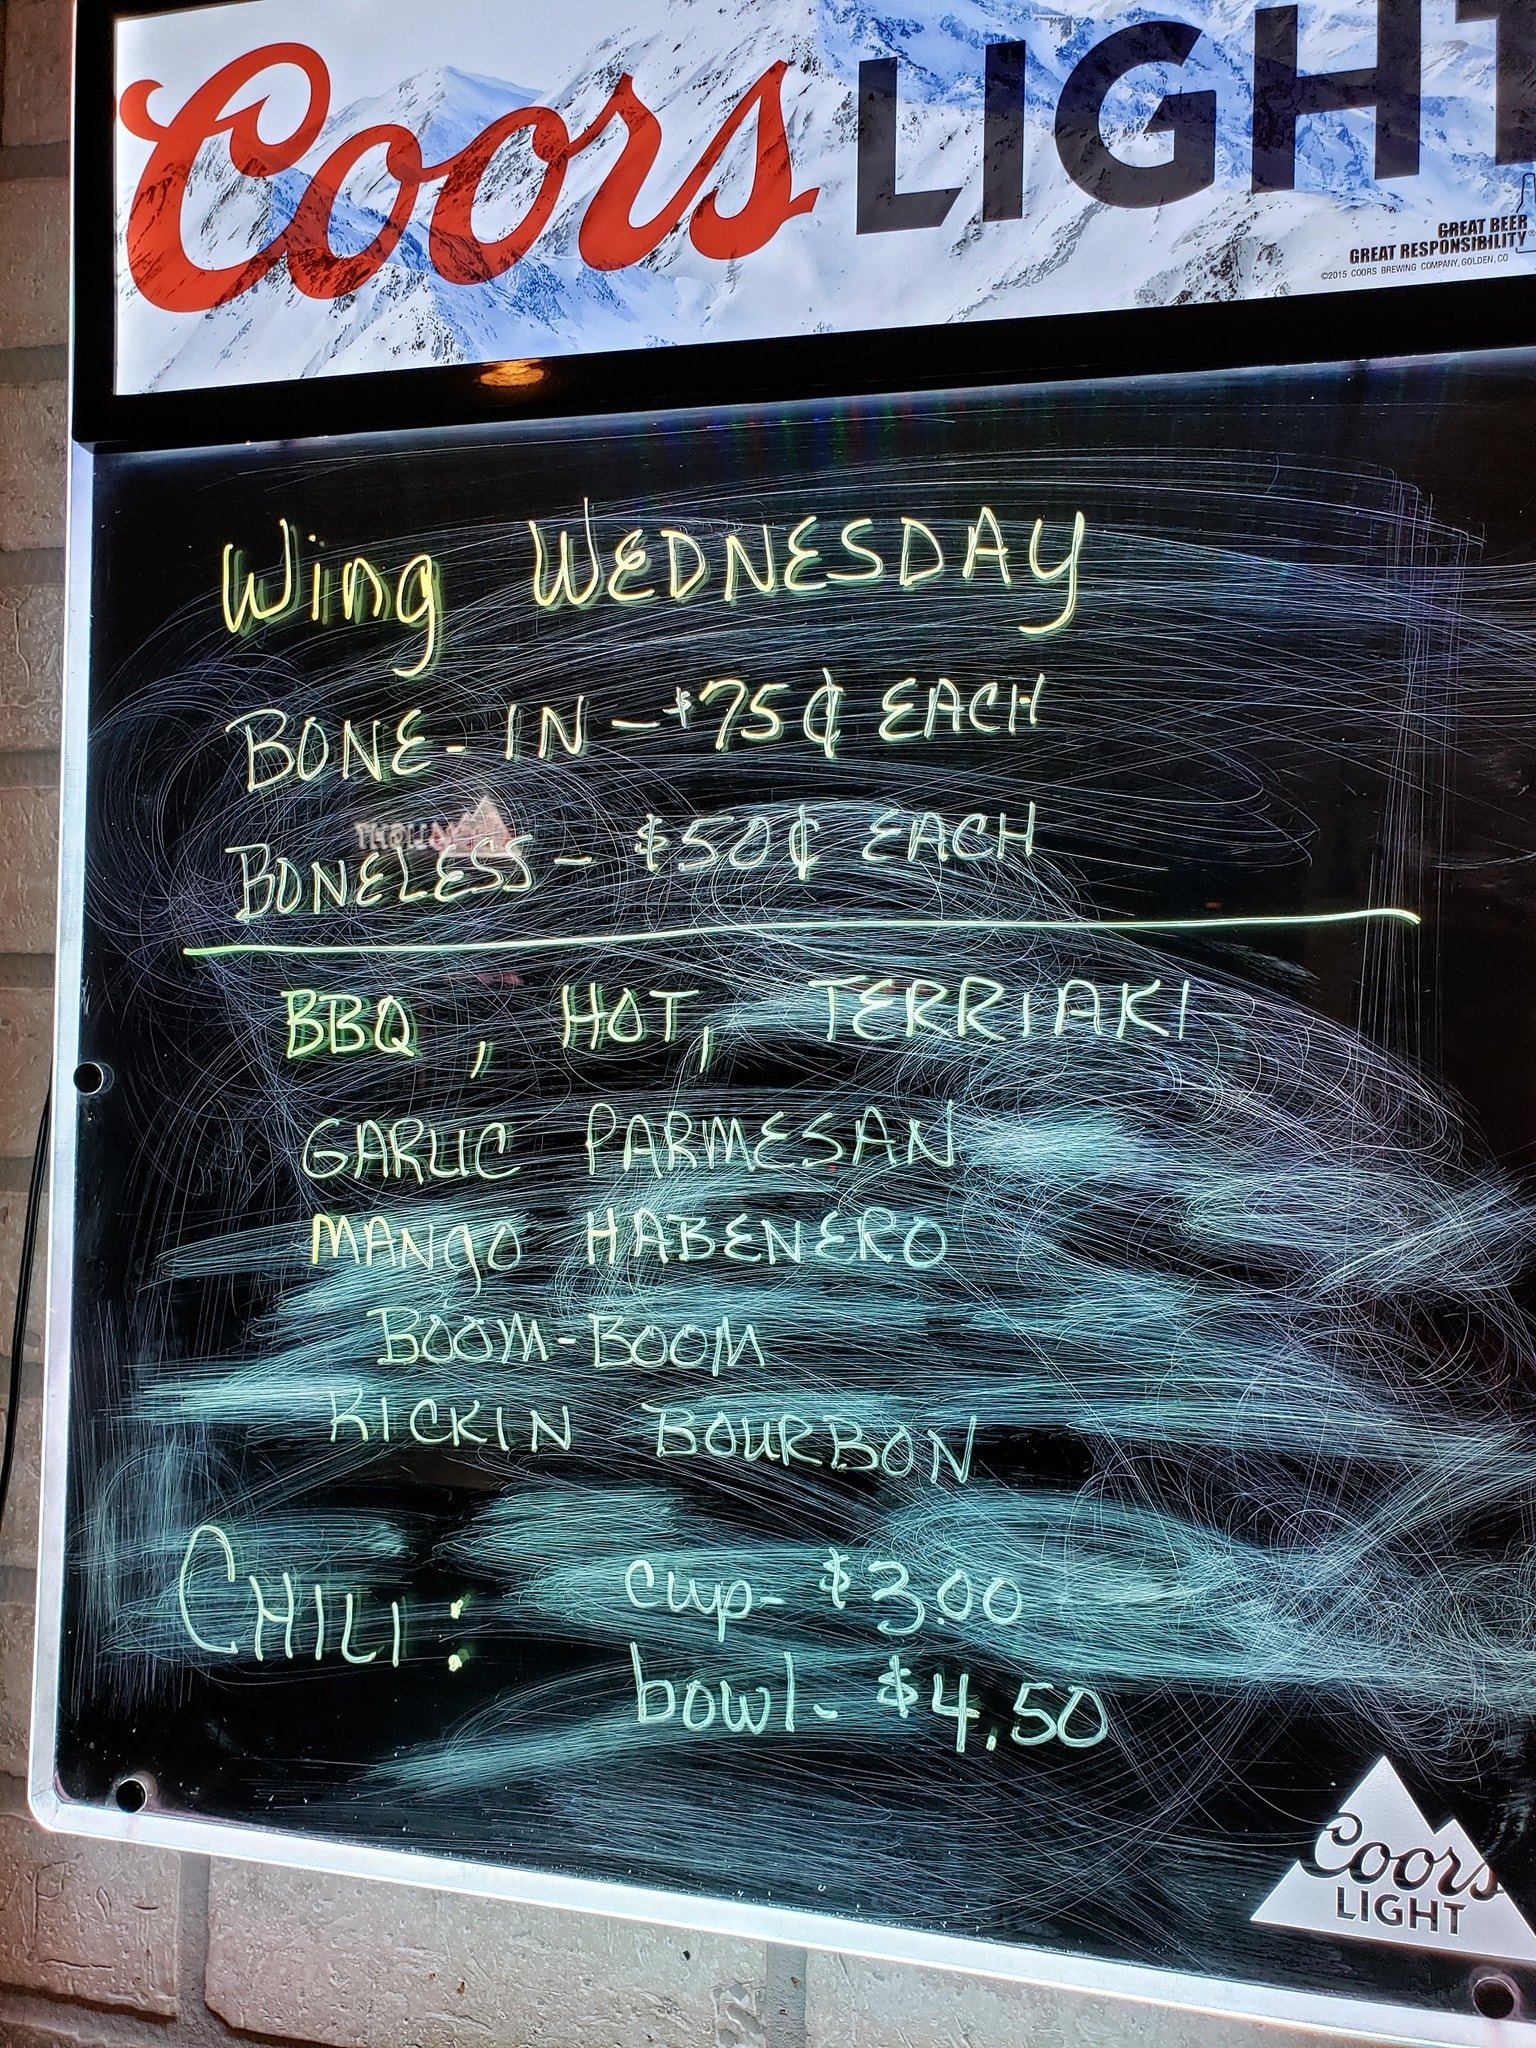 Coors LIGHT
GREAT BEER
GREAT RESPONSIBILITY®
©2015 COORS BREWING COMPANY, GOLDEN, CO
Wing WEDNESDAY
BONE-IN - $75¢ EACH
BONELESS - $50¢ EACH
BBQ, HOT, TERRIAKI
GARLIC PARMESAN
MANGO HABENERO
BOOM-BOOM
KICKIN BOURBON
CHILI: cup- $3.00
bowl- $4.50
Coors
LIGHT